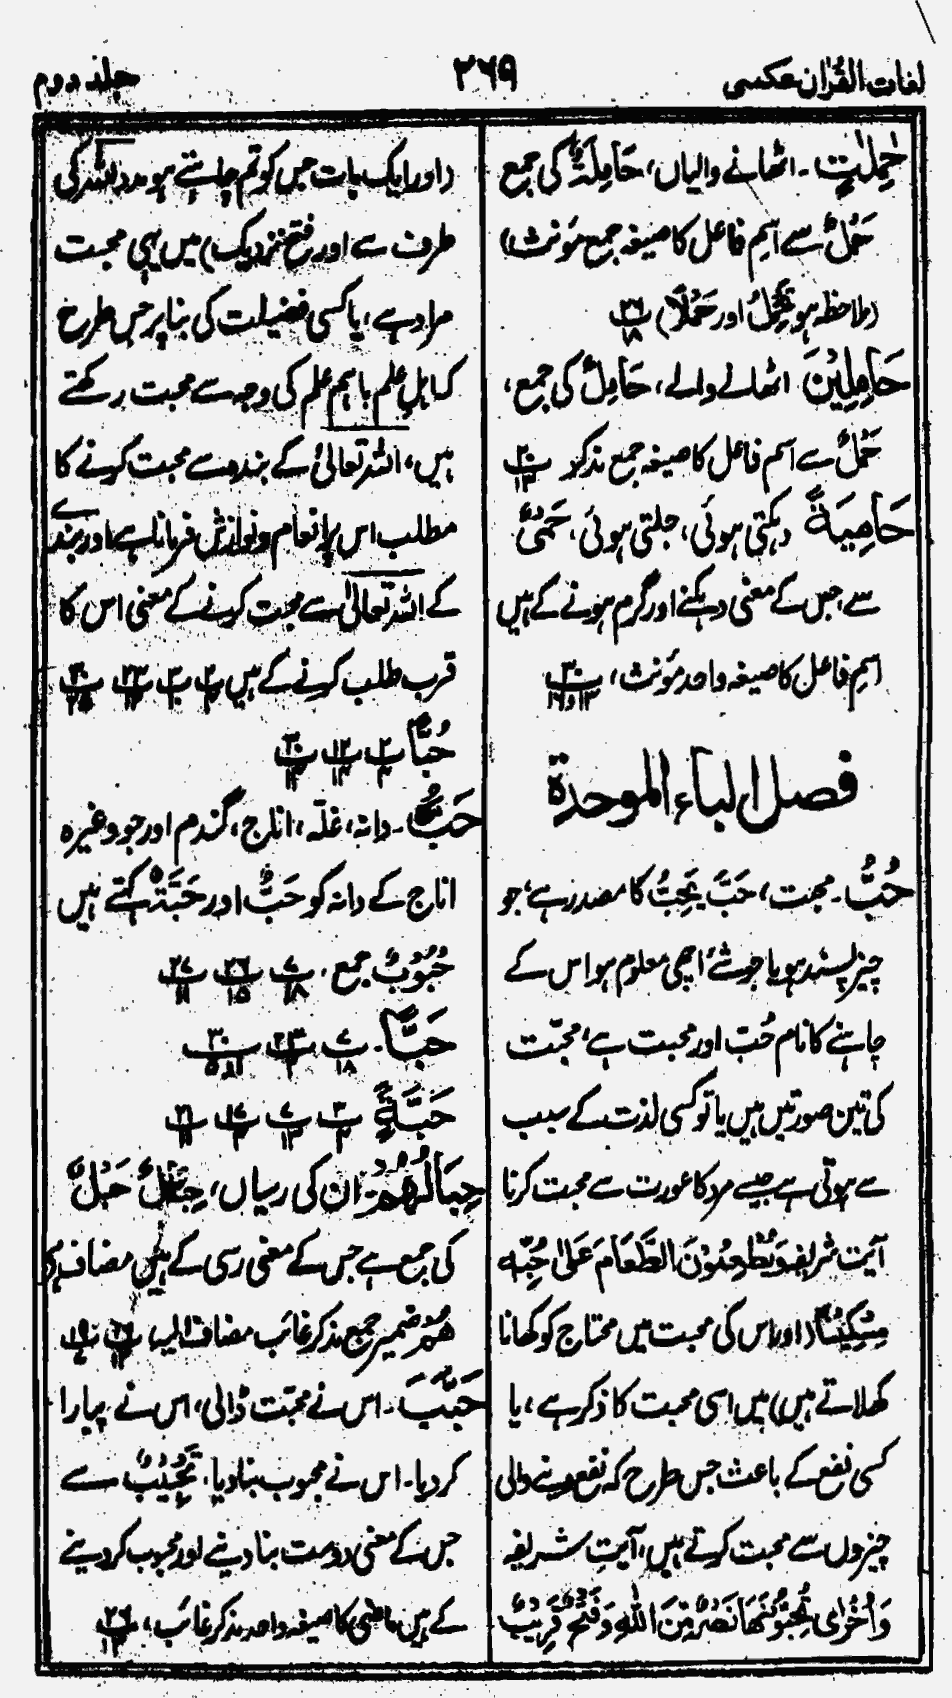 لغات القرآن عکسی
۲۶۹
جلد دوم
حٰمِلٰتٍ ۔ اٹھانے والیاں، حَامِلَۃٌ کی جمع
حَمْلٌ سے اسم فاعل کا صیغہ جمع مؤنث،
(ملاحظہ ہو تَحْمِلُ اور حَمْلًا) پ ۲۶ / ۱۸
حَامِلِیْنَ اٹھانے والے، حَامِلٌ کی جمع،
حَمْلٌ سے اسم فاعل کا صیغہ جمع مذکر پ ۲۰ / ۱۳
حَامِیَۃٌ دہکتی ہوئی، جلتی ہوئی، حَمْیٌ
سے، جس کے معنی دہکنے اور گرم ہونے کے ہیں
اسمِ فاعل کا صیغہ واحد مؤنث، پ ۳۰ / ۱۳ و ۲۶
فصل الباء الموحدة
حُبُّ ۔ محبت، حَبَّ یَحِبُّ کا مصدر ہے، جو
چیز پسند ہو یا جو شئے اچھی معلوم ہو اس کے
چاہنے کا نام حُبّ اور محبت ہے، محبّت
کی تین صورتیں ہیں یا تو کسی لذت کے سبب
سے ہوتی ہے جیسے مرد کا عورت سے محبت کرنا
آیت شریفہ وَیُطْعِمُوْنَ الطَّعَامَ عَلٰی حُبِّہٖ
مِسْکِیْنًا (اور اس کی محبت میں محتاج کو کھانا
کھلاتے ہیں) میں اسی محبت کا ذکر ہے، یا
کسی نفع کے باعث جس طرح کہ نفع دینے والی
چیزوں سے محبت کرتے ہیں، آیت شریفہ
وَاُخْرٰی تُحِبُّوْنَھَا نَصْرٌ مِّنَ اللّٰہِ وَفَتْحٌ قَرِیْبٌ
(اور ایک بات جس کو تم چاہتے ہو مدد اللہ کی
طرف سے اور فتح نزدیک) میں یہی محبت
مراد ہے، یا کسی فضیلت کی بنا پر جس طرح
کہ اہلِ علم باہم علم کی وجہ سے محبت رکھتے
ہیں، اللہ تعالیٰ کے بندہ سے محبت کرنے کا
مطلب اس پر انعام و نوازش فرمانا ہے اور بندے
کے اللہ تعالیٰ سے محبت کرنے کے معنی اس کا
قرب طلب کرنے کے ہیں
حُبًّا پ ۲ / ۴ پ ۱۲ / ۱۴ پ ۳۰ / ۱۴
حَبٌّ ۔ دانہ، غلّہ، اناج، گندم اور جو وغیرہ
اناج کے دانہ کو حَبٌّ اور حَبَّۃٌ کہتے ہیں
حُبُوْبٌ جمع، پ ۷ / ۱۸ پ ۲۶ / ۱۵ پ ۲۷ / ۱۱
حَبًّا ۔ پ ۷ / ۱۸ پ ۲۳ / ۲ پ ۳۰ / ۱ و ۵
حَبَّۃٍ پ ۳ / ۴ پ ۷ / ۱۳ پ ۱۷ / ۴ پ ۲۱ / ۱۱
حِبَالُھُمْ ان کی رسیاں، حِبَالٌ حَبْلٌ
کی جمع ہے جس کے معنی رسی کے ہیں مضاف
ھُمْ ضمیر جمع مذکر غائب مضاف الیہ
حَبَّبَ ۔ اس نے محبّت ڈالی، اس نے پیارا
کر دیا ۔ اس نے محبوب بنا دیا، تَحْبِیْبٌ سے
جس کے معنی دوست بنا دینے اور محبوب کر دینے
کے ہیں ماضی کا صیغہ واحد مذکر غائب، پ ۲۶ / ۱۳